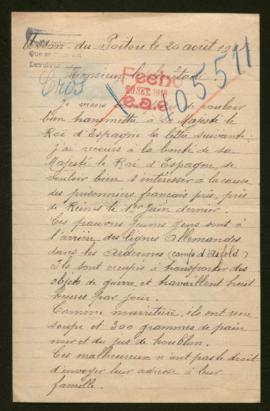 du Poitou le 20 août 19
Monsieur le
Fecho
20 SET. 1918
e.a.c.
05511
Je viens vouloir
bien transmettre à Sa Majesté le
Roi d'Espagne la lettre suivante
j'ai recours à la bonté de sa
Majesté le Roi d'Espagne, de
vouloir bien s'intéresser à la cause
des prisonniers français pris, près
de Reims le 1er Juin dernier.
Ces pauvres jeunes gens sont à
l'arrière des lignes Allemandes
dans les Ardennes (camp d'
Ils sont occupés à transporter des
objets de guerre, et travaillent huit
heures par jour.
Comme nourriture, ils ont une
soupe et 300 grammes de pain
noir et du jus de houblon.
Ces malheureux n'ont pas le droit
d'envoyer leur adresse à leur
famille.